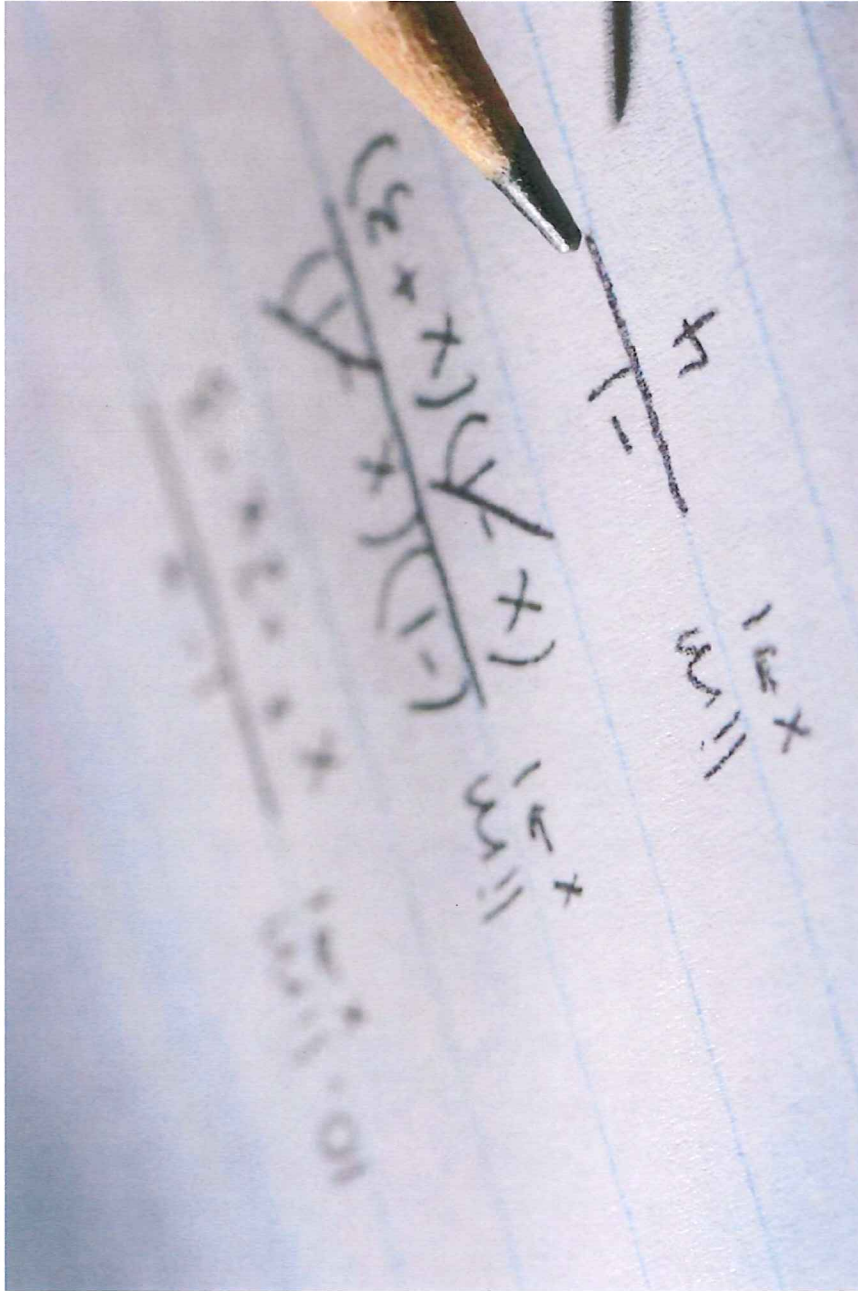 10. lim x→1 x² + 2x - 3
1 - x
lim x→1 (x - 1)(x + 3)
(-1)(x - 1)
lim x→1 4
-1